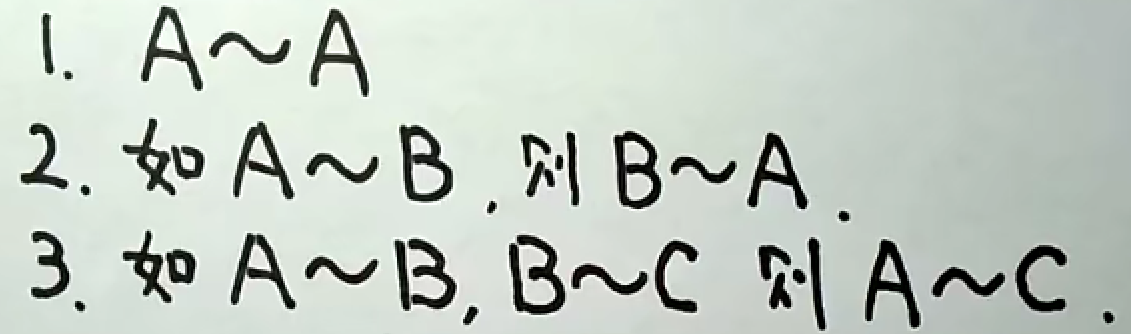 1. A~A
2. 如 A~B, 则 B~A.
3. 如 A~B, B~C 则 A~C.